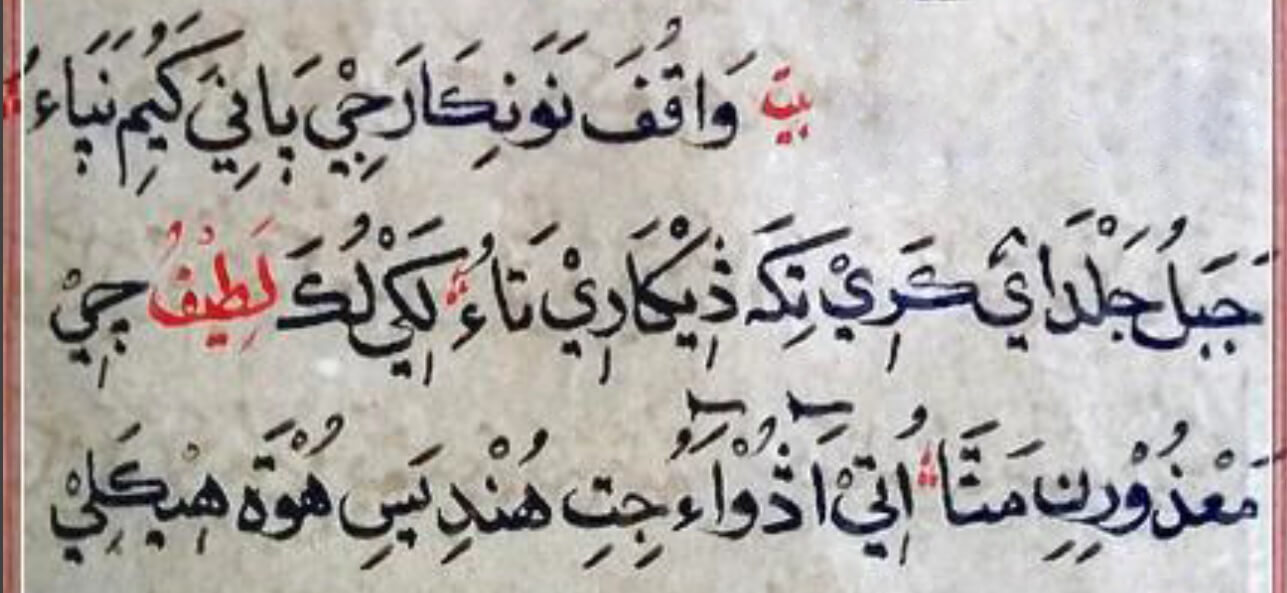 بيت وَاقُفَ نَوَنِڪَارَ جِيْ پَانِيَ کَيُمِ نَپَاءِ
جَبَلُ جَلْدَائِ ڪَرِيْ تِکَہ ذِيْکَارِيْ تَاءُ لِکِيْ لُڪَ لَطِيْفُ چِيْ
مَعْذُوْرِنِ مَتَّا اُتِيْ اَڏُوْاءُ جِتِ هُنْدِيَسِ هُوْتَہ هِيْڪَلِيْ